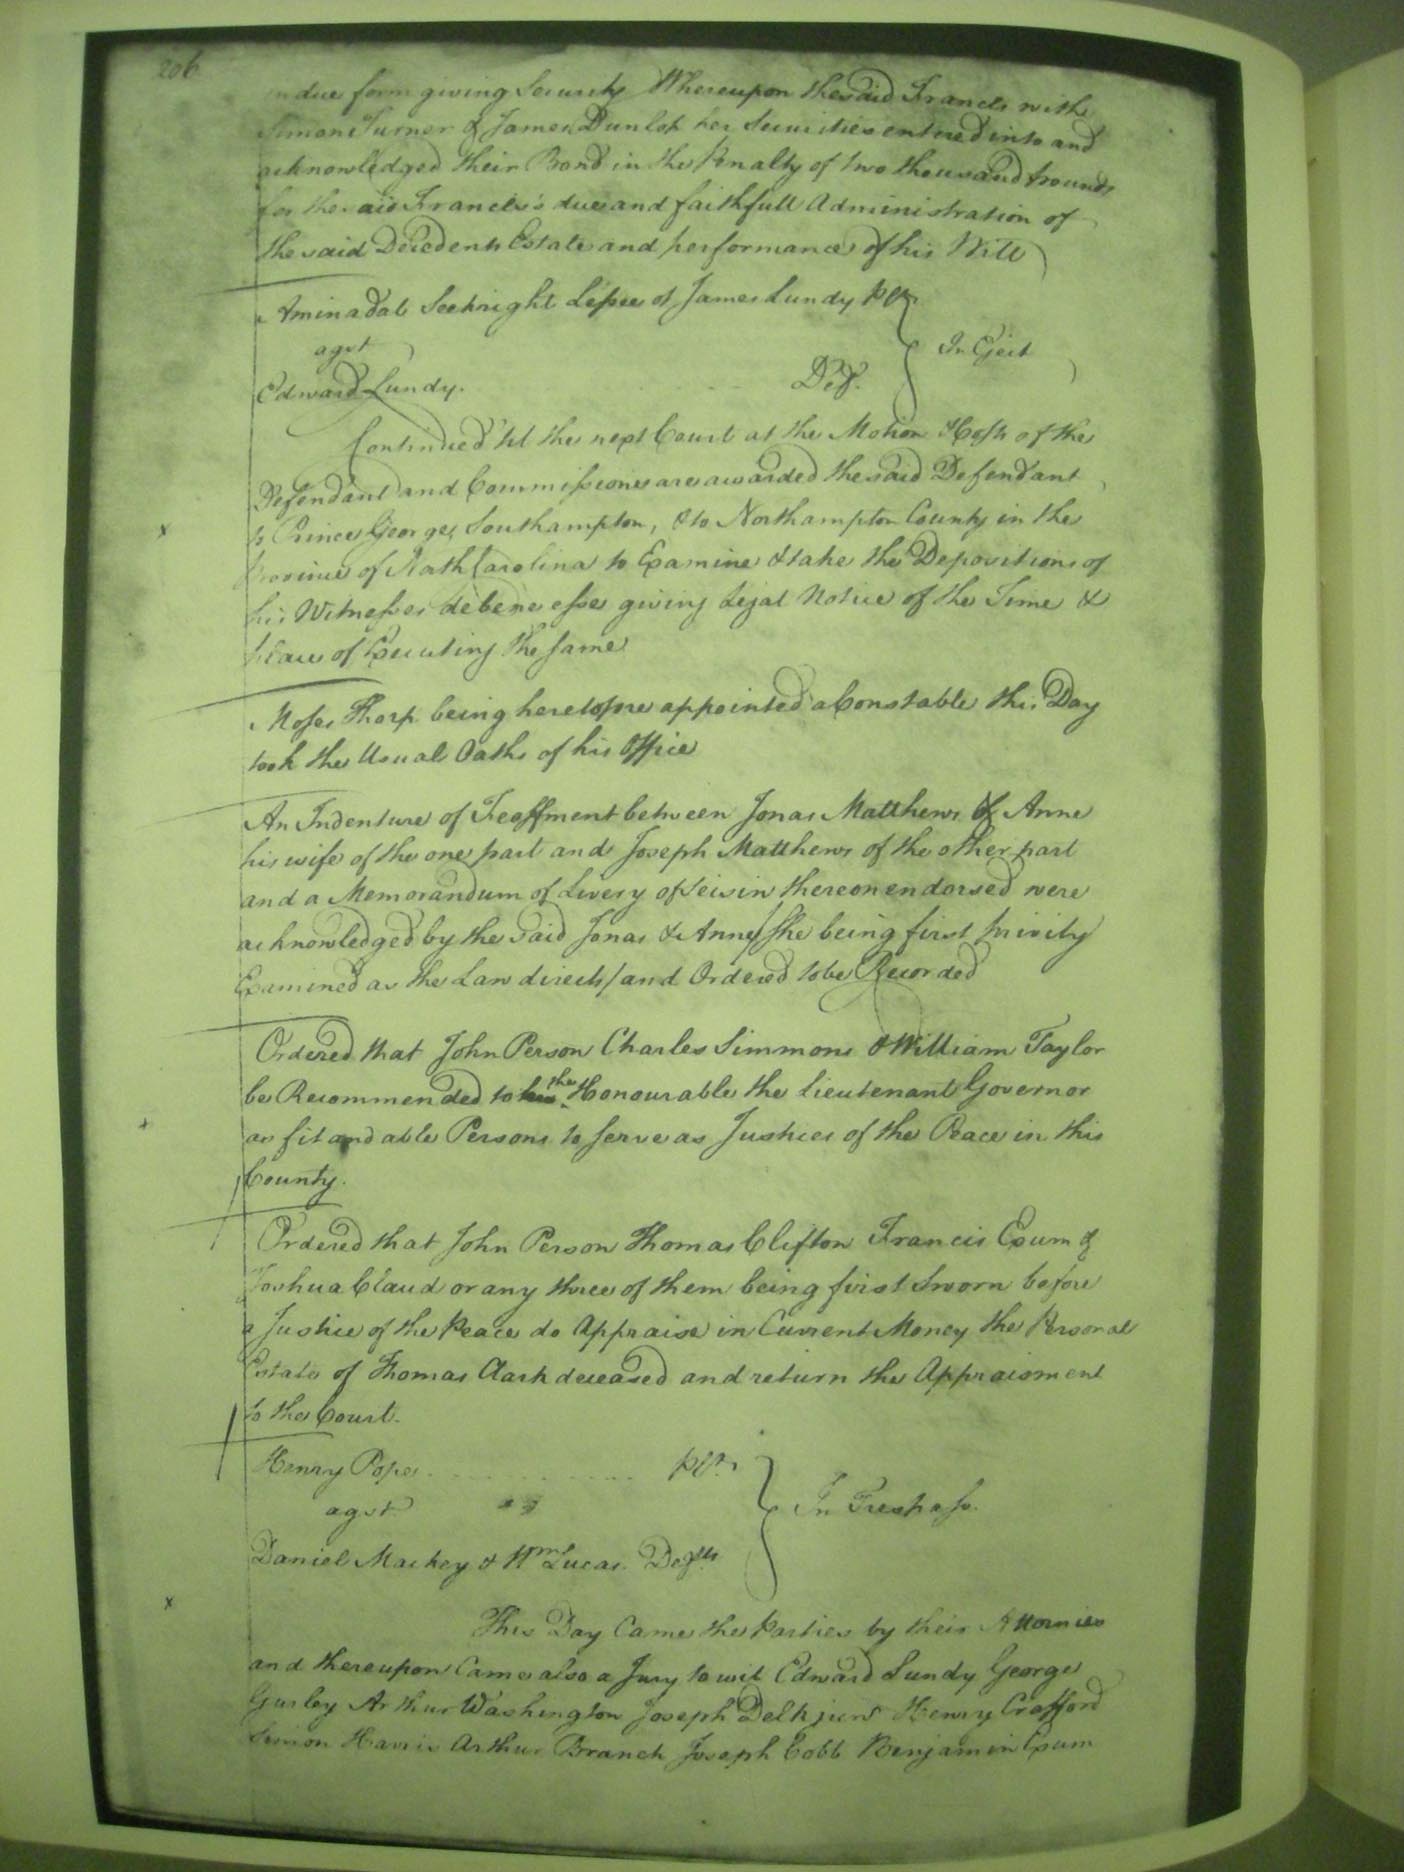 206
in due form giving Security Whereupon the said Francis with
Simon Turner & James Dunlop her Securities entred into and
acknowledged their Bond in the Penalty of two thousand pounds
for the said Francis's due and faithfull Administration of
the said Decedents Estate and performance of his Will
Aminadab Seekright Lessee of James Lundy plt
agst
Edward Lundy. Def.
In Eject
Continued 'til the next Court at the Motion & Costs of the
Defendant and Commissions are awarded the said Defendant
to Prince George, Southampton, & to Northampton County in the
Province of North Carolina to Examine & take the Depositions of
his Witnesses debene esse giving Legal Notice of the Time &
place of Executing the same
Moses Tharp being heretofore appointed a Constable this Day
took the Usual Oaths of his Office
An Indenture of Feoffment between Jonas Matthews & Anne
his wife of the one part and Joseph Matthews of the other part
and a Memorandum of Livery of Seisin thereon endorsed were
acknowledged by the said Jonas & Anne /she being first privily
Examined as the Law directs/ and Ordered to be Recorded
Ordered that John Person Charles Simmons & William Taylor
be Recommended to the Honourable the Lieutenant Governor
as fit and able Persons to serve as Justices of the Peace in this
County.
Ordered that John Person Thomas Clifton Francis Exum &
Joshua Claud or any three of them being first Sworn before
a Justice of the Peace do Appraise in Current Money the Personal
Estate of Thomas Clark deceased and return the Appraisment
to the Court.
Henry Pope plt
agst
Daniel Mackey & Wm Lucas. Defts
In Trespass.
This Day Came the Parties by their Attornies
and thereupon Came also a Jury to wit Edward Lundy George
Gurley Arthur Washington Joseph Delk junr Henry Crafford
Simon Harris Arthur Branch Joseph Cobb Benjamin Exum